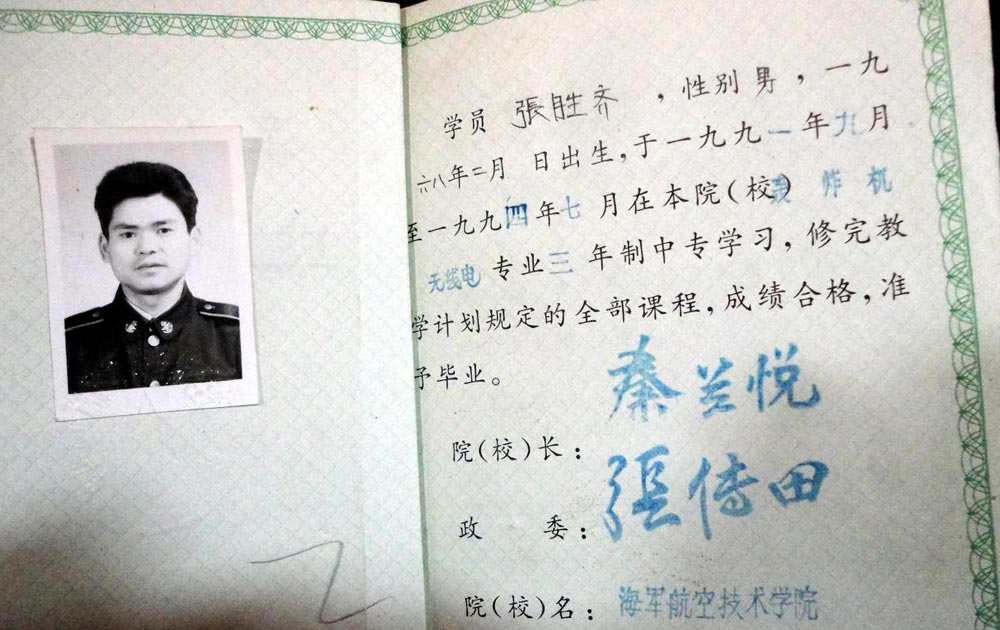 学员 張胜齐 ，性别男，一九
六八年二月 日出生，于一九九一年九月
至一九九四年七月在本院(校) 炸机
无线电专业三年制中专学习，修完教
学计划规定的全部课程，成绩合格，准
予毕业。
院(校)长：秦兰悦
政 委：張传田
院(校)名：海军航空技术学院